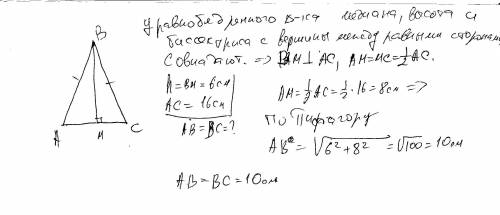 У равнобедренного Δ-ка медиана, высота и
биссектриса с вершины между равными сторонами
совпадают. => BM⊥AC, AM=MC=½AC.
B
A
M
C
h=BM=6см
AC=16см
AB=BC=?
AM=½AC=½·16=8см =>
по Пифагору
AB=√6²+8²=√100=10см
AB=BC=10см